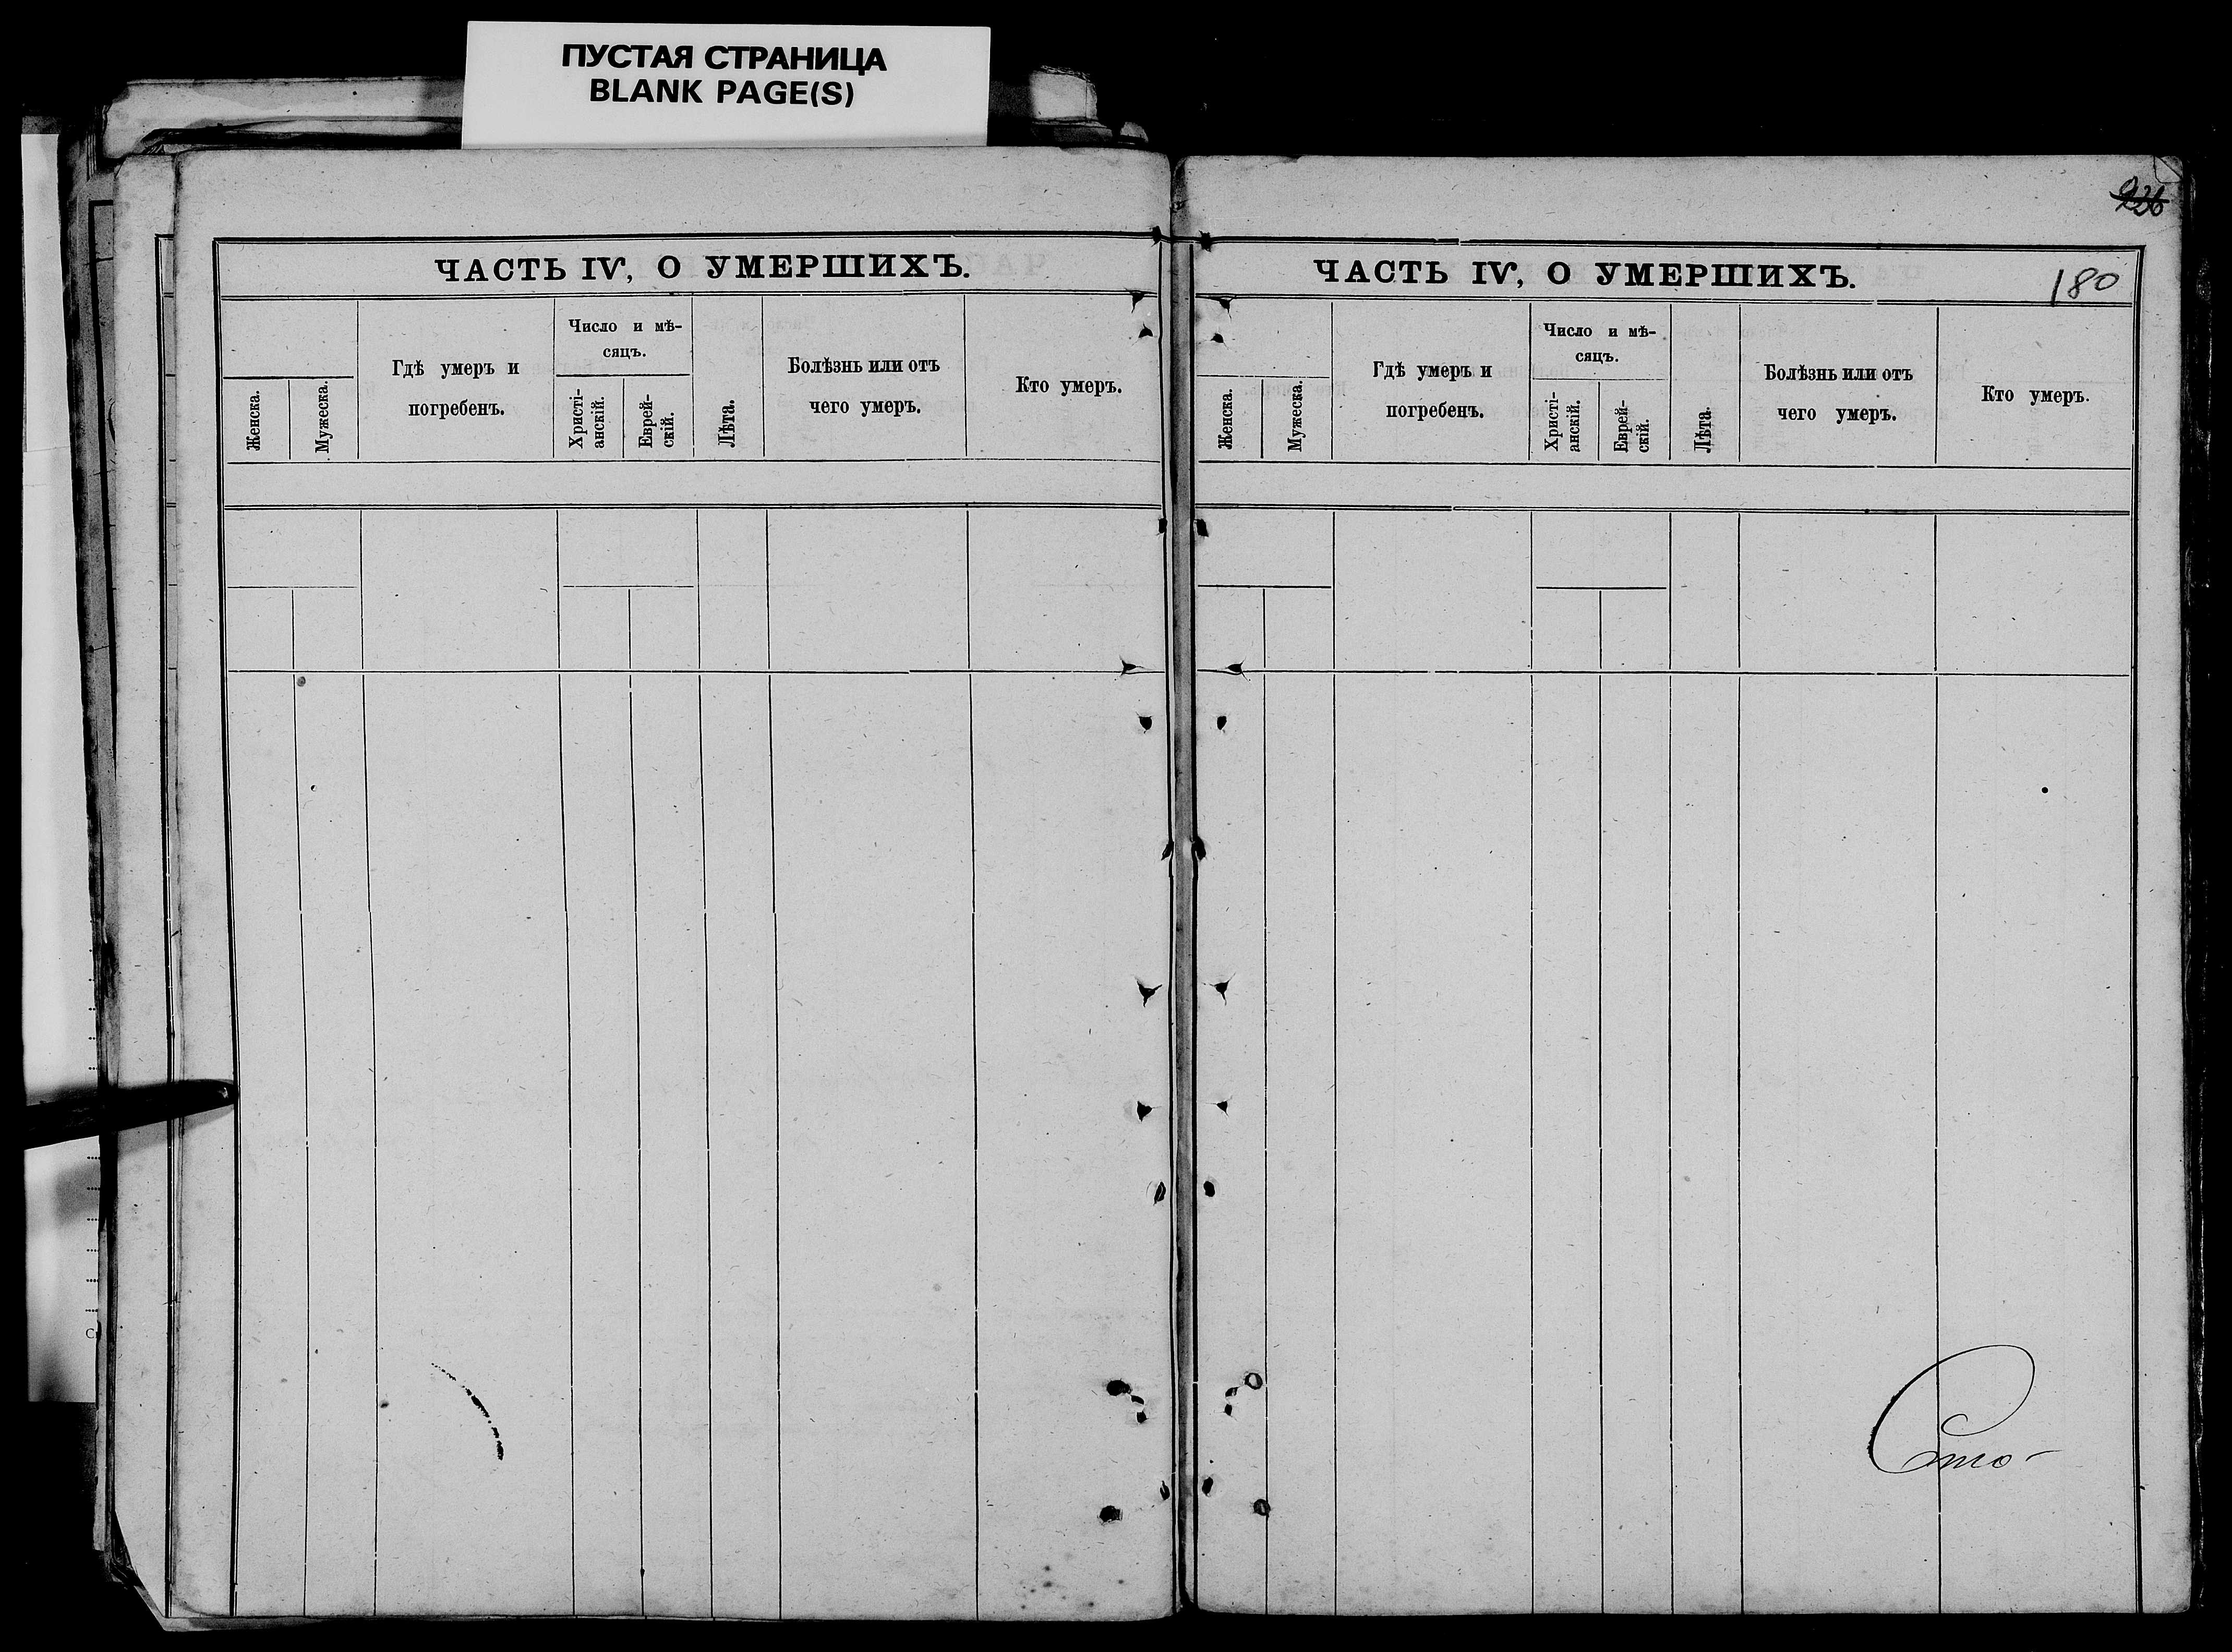 ПУСТАЯ СТРАНИЦА
BLANK PAGE(S)
ЧАСТЬ IV, О УМЕРШИХЪ.
Женска.
Мужеска.
Гдѣ умеръ и
погребенъ.
Число и мѣ-
сяцъ.
Христі-
анскій.
Еврей-
скій.
Лѣта.
Болѣзнь или отъ
чего умеръ.
Кто умеръ.
ЧАСТЬ IV, О УМЕРШИХЪ.
180
Женска.
Мужеска.
Гдѣ умеръ и
погребенъ.
Число и мѣ-
сяцъ.
Христі-
анскій.
Еврей-
скій.
Лѣта.
Болѣзнь или отъ
чего умеръ.
Кто умеръ.
Сто-